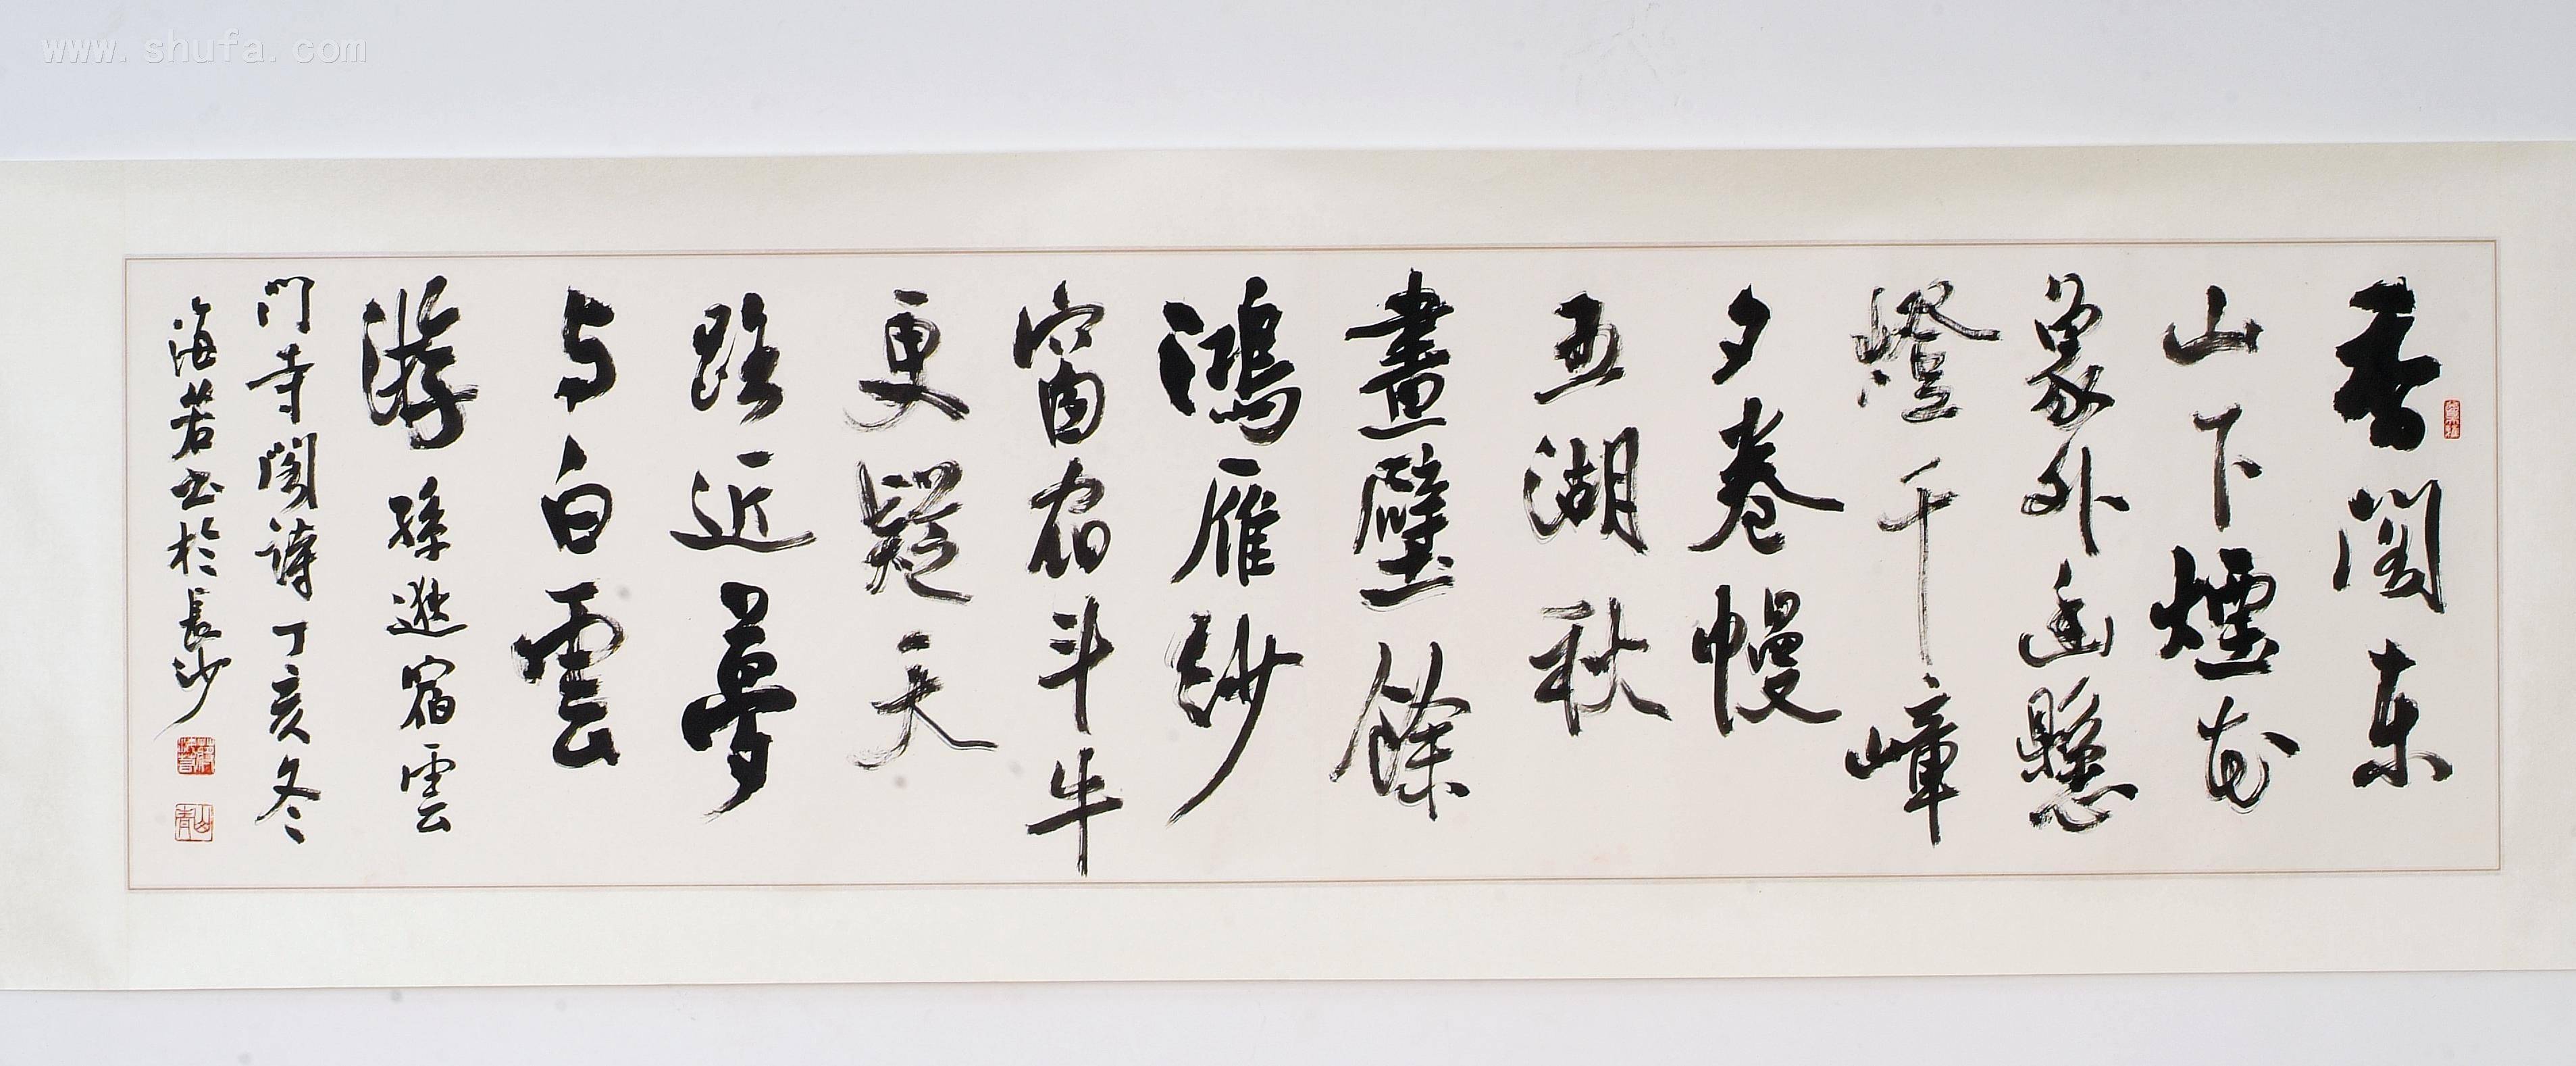 www.shufa.com
香閣東
山下煙花
象外幽懸
燈千嶂
夕卷幔
五湖秋
畫壁餘
鴻雁紗
窗宿斗牛
更疑天
路近夢
与白雲
游 孫逖宿雲
門寺閣詩丁亥冬
海若书於長沙